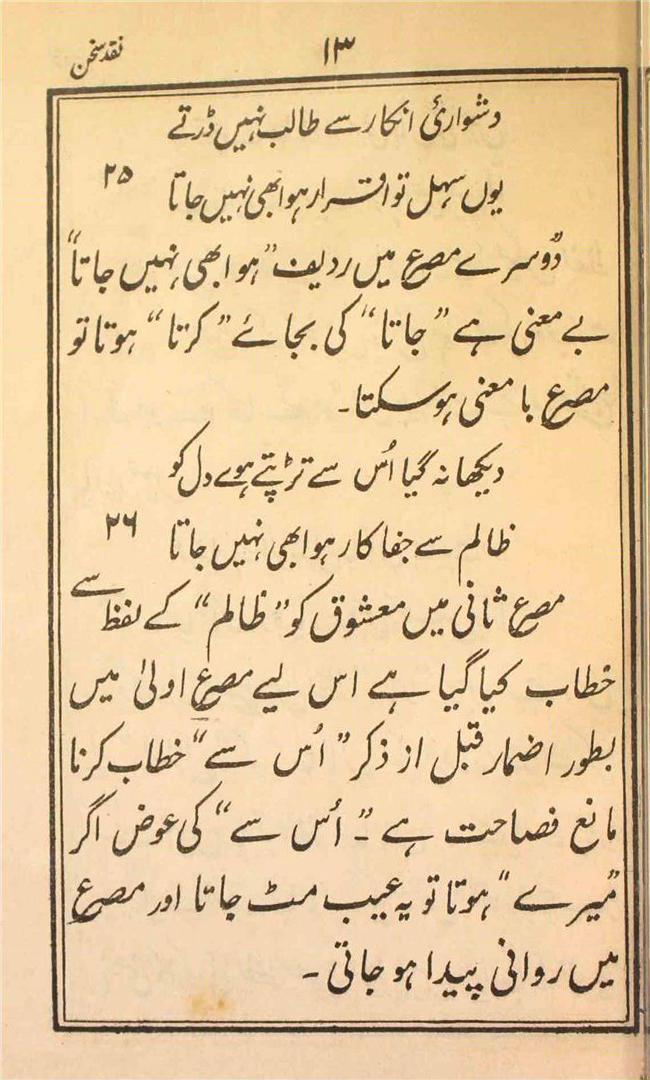 نقد سخن
۱۳
دشواریٔ انکار سے طالب نہیں ڈرتے
یوں سہل تو اقرار ہوا بھی نہیں جاتا ۲۵
دُوسرے مصرع میں ردیف "ہوا بھی نہیں جاتا"
بے معنی ہے "جاتا" کی بجائے "کرتا" ہوتا تو
مصرع با معنی ہو سکتا۔
دیکھا نہ گیا اُس سے تڑپتے ہوے دل کو
ظالم سے جفا کار ہوا بھی نہیں جاتا ۲۶
مصرع ثانی میں معشوق کو "ظالم" کے لفظ سے
خطاب کیا گیا ہے اس لیے مصرع اولیٰ میں
بطور اضمار قبل از ذکر "اُس سے" خطاب کرنا
مانع فصاحت ہے۔ "اُس سے" کی عوض اگر
"میرے" ہوتا تو یہ عیب مٹ جاتا اور مصرع
میں روانی پیدا ہو جاتی۔